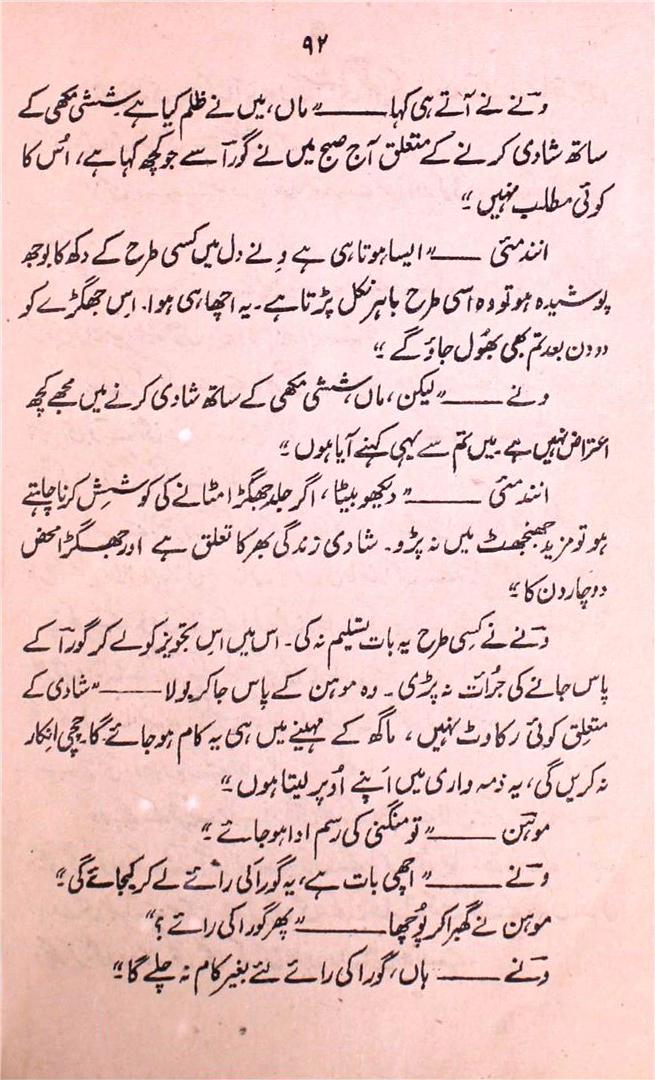 ۹۲
ونے نے آتے ہی کہا——— ”ماں، میں نے ظلم کیا ہے ششی مکھی کے
ساتھ شادی کرنے کے متعلق آج صبح میں نے گورا سے جو کچھ کہا ہے، اُس کا
کوئی مطلب نہیں“
انند مئی —— ”ایسا ہوتا ہی ہے وِنے دل میں کسی طرح کے دکھ کا بوجھ
پوشیدہ ہو تو وہ اسی طرح باہر نکل پڑتا ہے۔ یہ اچھا ہی ہوا۔ اس جھگڑے کو
دو دن بعد تم بھی بھُول جاؤ گے“
ونے ——— ”لیکن، ماں، ششی مکھی کے ساتھ شادی کرنے میں مجھے کچھ
اعتراض نہیں ہے۔ میں تم سے یہی کہنے آیا ہوں“
انند مئی ——— ”دیکھو بیٹا، اگر جلد جھگڑا مٹانے کی کوشش کرنا چاہتے
ہو تو مزید جھنجھٹ میں نہ پڑو۔ شادی زندگی بھر کا تعلق ہے اور جھگڑا محض
دو چار دن کا“
ونے نے کسی طرح یہ بات تسلیم نہ کی۔ اس میں اس تجویز کو لے کر گورا کے
پاس جانے کی جُرأت نہ پڑی۔ وہ موہن کے پاس جا کر بولا ——— ”شادی کے
متعلق کوئی رکاوٹ نہیں، ماگھ کے مہینے میں ہی یہ کام ہو جائے گا چچی انکار
نہ کریں گی، یہ ذمہ واری میں اَپنے اُوپر لیتا ہوں“
موہن ——— ”تو منگنی کی رسم ادا ہو جائے“
ونے ——— ”اچھی بات ہے، یہ گورا کی رائے لے کر کیجائے گی“
موہن نے گھبرا کر پُوچھا ——— ”پھر گورا کی رائے؟“
ونے ——— ہاں، گورا کی رائے لئے بغیر کام نہ چلے گا“